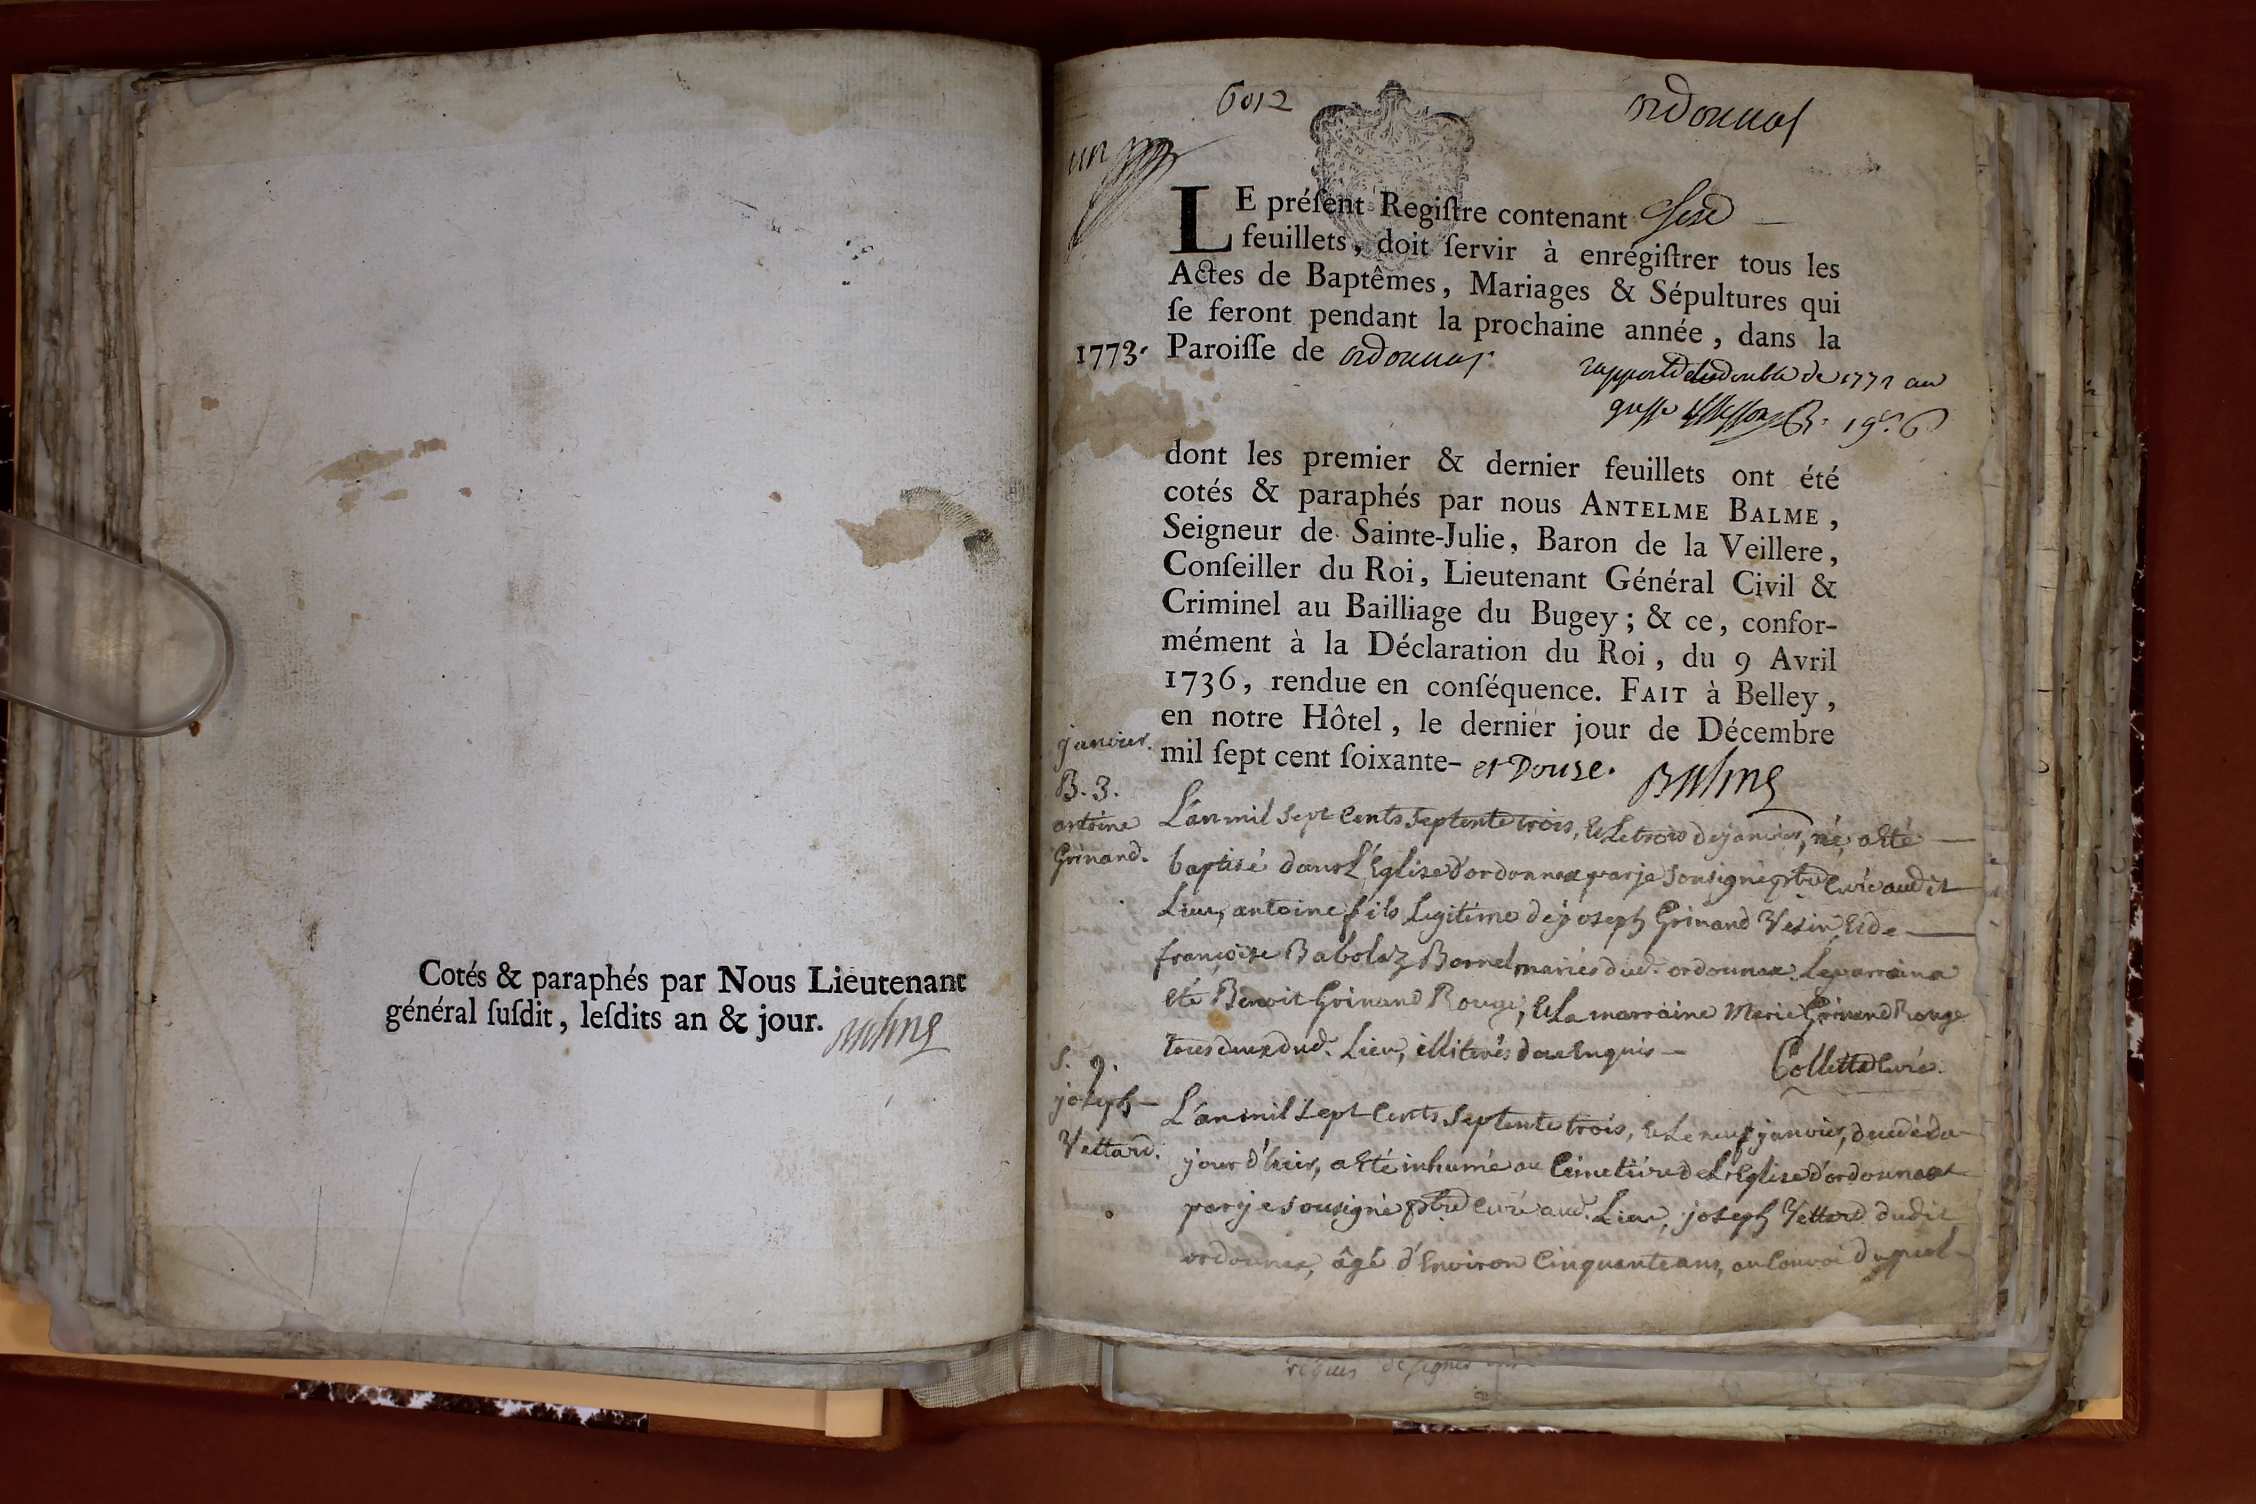 Cotés & paraphés par Nous Lieutenant
général ſuſdit, leſdits an & jour. Balme
6012
ordonnas
un
LE préſent Regiſtre contenant Seze
feuillets, doit ſervir à enrégiſtrer tous les
Actes de Baptêmes, Mariages & Sépultures qui
ſe feront pendant la prochaine année, dans la
1773. Paroiſſe de ordonnas.
rapporté le double de 1772 au
greffe
dont les premier & dernier feuillets ont été
cotés & paraphés par nous ANTELME BALME,
Seigneur de Sainte-Julie, Baron de la Veillere,
Conſeiller du Roi, Lieutenant Général Civil &
Criminel au Bailliage du Bugey; & ce, confor-
mément à la Déclaration du Roi, du 9 Avril
1736, rendue en conſéquence. FAIT à Belley,
en notre Hôtel, le dernier jour de Décembre
mil ſept cent ſoixante- et Douse. Balme
janvier.
B. 3.
antoine
Grinand.
L'an mil sept Cents septente trois, & le trois de janvier, né, a Eté
baptisé dans L'Eglise d'ordonnax par je sousigné ptre Curé audit
Lieu, antoine fils Legitime de joseph Grinand Vesin Et de
françoise Babolaz Bornel mariés dud. ordonnax. Le parrain a
Eté Benoit Grinand Rouge, & La marraine Marie Grinand Rouge
tous deux dud. Lieu, illiterés de ce Enquis
Collette Curé.
S. 9.
joseph
Vettard.
L'an mil Sept Cents Septente trois, & Le neuf janvier, decedé du
jour d'hier, a Eté inhumé au Cimetiére de L'Eglise d'ordonnax
par je sousigné ptre Curé aud. Lieu, joseph Vettard dudit
ordonnax, âgé d'Environ Cinquante ans, au Convoi duquel
requis de signer